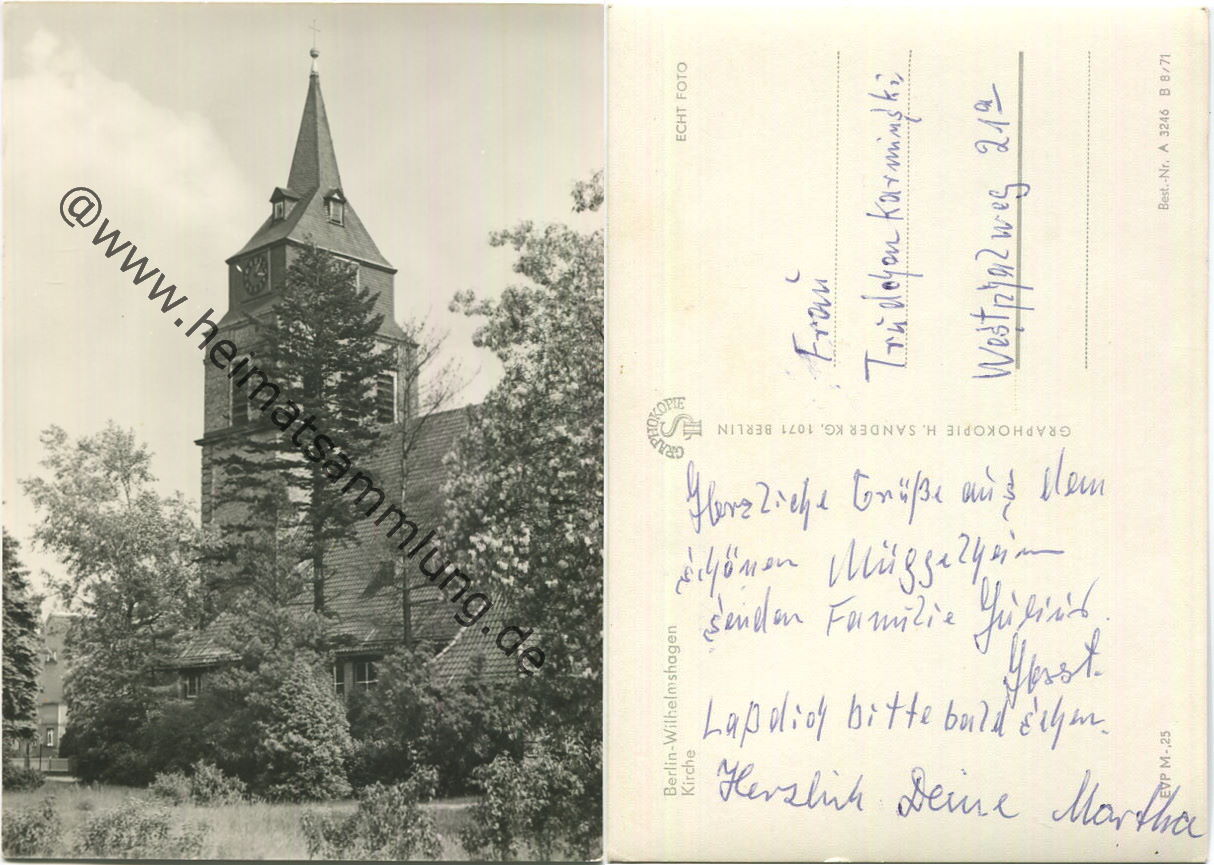 @www.heimatsammlung.de
ECHT FOTO
Frau
Trüdchen Karminski
Westphalweg 21a
Best.-Nr. A 3246 B 8/71
GRAPHOKOPIE
GRAPHOKOPIE H. SANDER KG, 1071 BERLIN
Herzliche Grüße aus dem
schönen Müggelheim
senden Familie Julius.
Horst.
Laß dich bitte bald sehen.
Herzlich Deine Martha
Berlin-Wilhelmshagen
Kirche
EVP M -,25